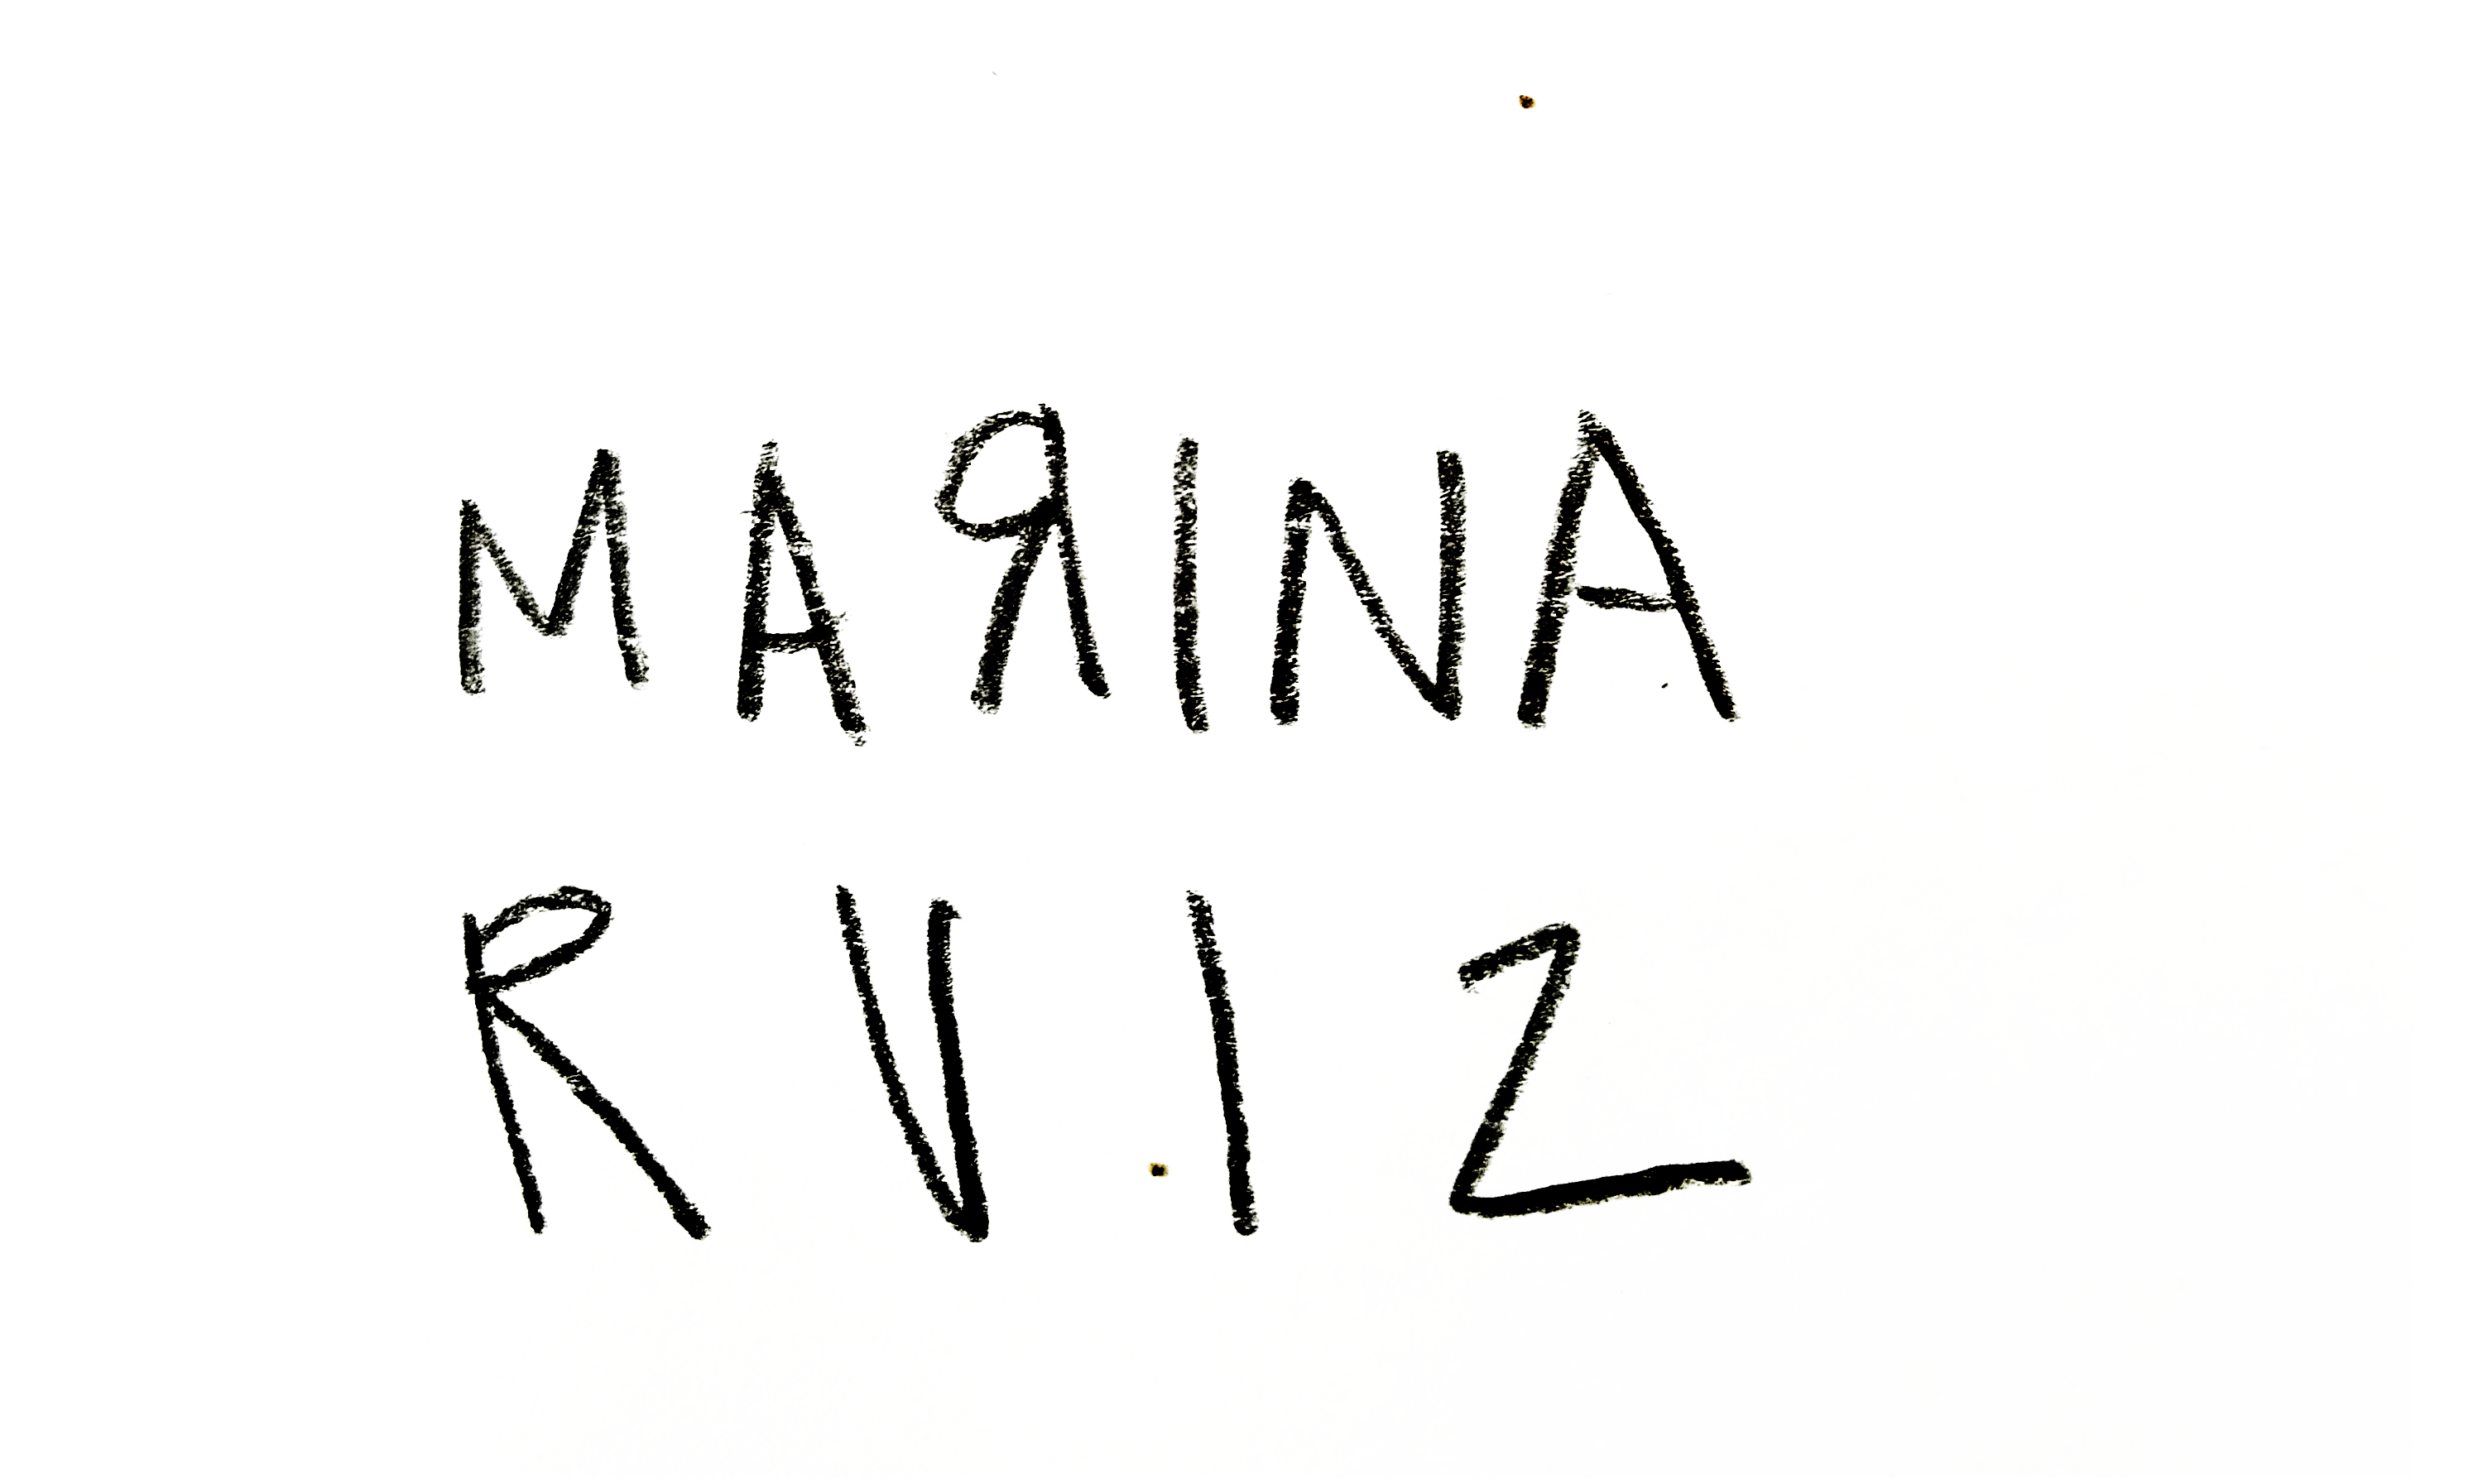 MAЯINA
RVIZ